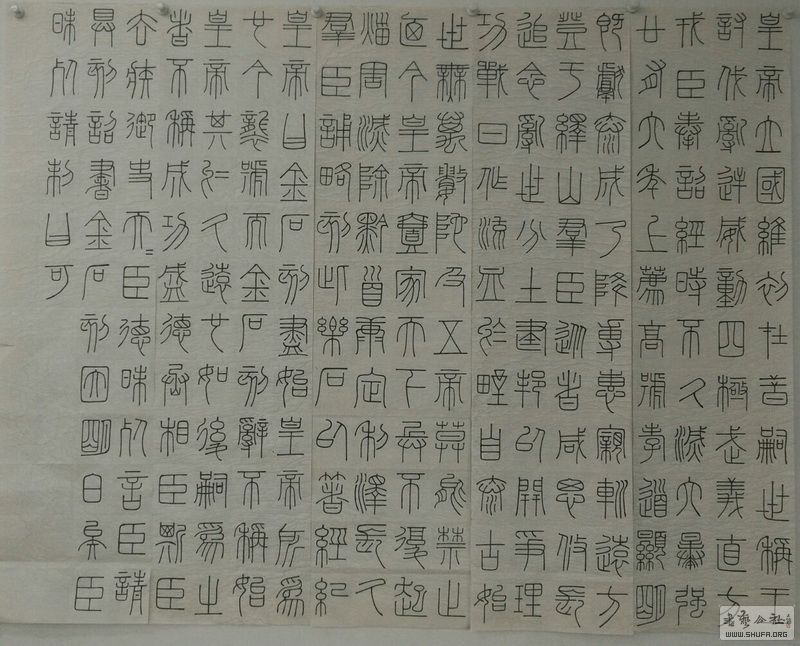 皇帝立國維初在昔嗣世稱王
討伐亂逆威動四極武義直方
戎臣奉詔經時不久滅六暴強
廿有六年上薦高號孝道顯明
既獻泰成乃降專惠親巡遠方
登于繹山羣臣從者咸思攸長
追念亂世分土建邦以開爭理
功戰日作流血於野自泰古始
世無萬數陀及五帝莫能禁止
廼今皇帝壹家天下兵不復起
災害滅除黔首康定利澤長久
羣臣誦略刻此樂石以著經紀
皇帝曰金石刻盡始皇帝所為
也今襲號而金石刻辭不稱始
皇帝其於久遠也如後嗣為之
者不稱成功盛德丞相臣斯臣
去疾御史夫=臣德昧死言臣請
具刻詔書金石刻因明白矣臣
昧死請制曰可
WWW.SHUFA.ORG